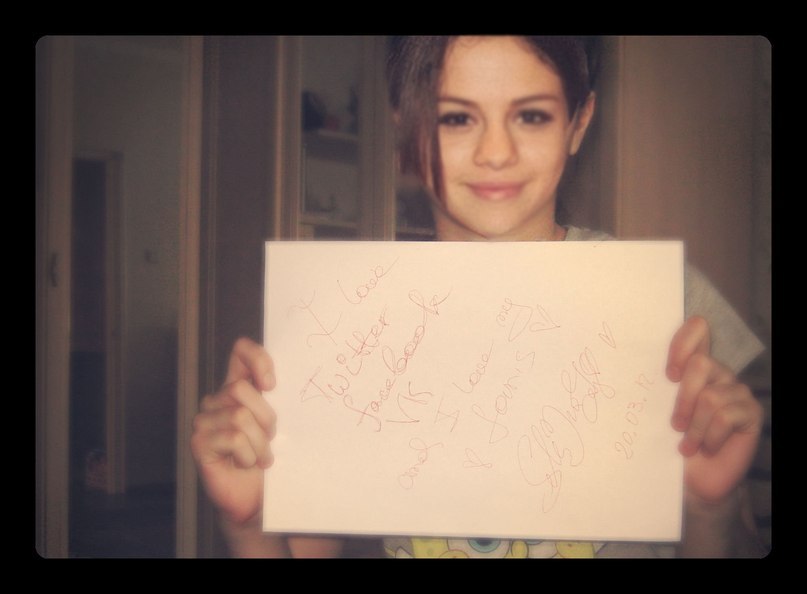 I love
Twitter
facebook
Vk
and I love my
fans
20.03.12